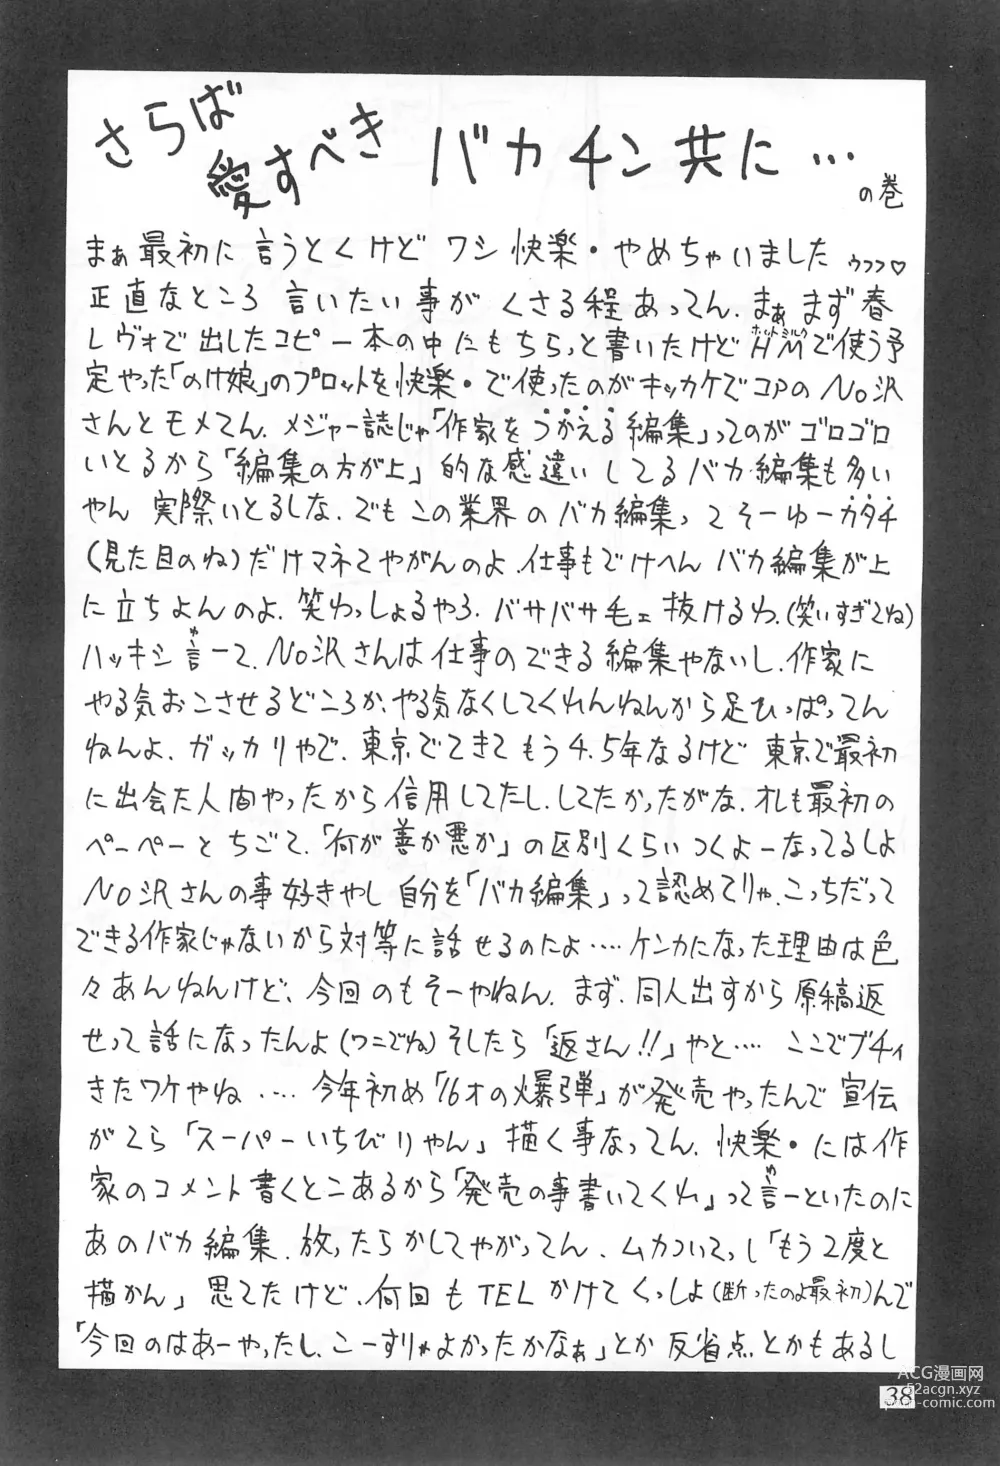 さらば
愛すべき バカチン共に…
の巻
まぁ最初に言うとくけど ワシ 快楽・やめちゃいました ゥフフ♡
正直なところ 言いたい事が くさる程あってん. まぁ まず 春
レヴォで出したコピー本の中にもちらっと書いたけどHM(ホットミルク)で使う予
定やった「のけ娘」のプロットを快楽・で使ったのがキッカケでコアのNo沢
さんとモメてん. メジャー誌じゃ「作家をつかえる編集」ってのがゴロゴロ
いとるから「編集の方が上」的な感違いしてるバカ編集も多い
やん 実際いとるしな. でもこの業界のバカ編集ってそーゆーカタチ
(見た目のね)だけマネてやがんのよ. 仕事もでけへん バカ編集が上
に立ちよんのよ. 笑わっしょるやろ. バサバサ毛ェ抜けるわ.(笑いすぎてね)
ハッキシ言(ゆ)ーて. No沢さんは仕事のできる編集やないし. 作家に
やる気おこさせるどころか、やる気なくしてくれんねんから足ひっぱってん
ねんよ. ガッカリやで. 東京でてきてもう4.5年なるけど 東京で最初
に出会た人間やったから信用してたし. してたかったがな. オレも最初の
ペーペーとちごて.「何が善か悪か」の区別くらいつくよーなってるしよ
No沢さんの事好きやし 自分を「バカ編集」って認めてりゃ. こっちだって
できる作家じゃないから対等に話せるのによ‥‥ケンカになった理由は色
々あんねんけど、今回のもそーやねん. まず. 同人出すから原稿返
せって話になったんよ(ワニでね)そしたら「返さん!!」やと‥‥ ここでブチィ
きたワケやね ‥‥ 今年初め「16才の爆弾」が発売やったんで宣伝
がてら「スーパーいちびりやん」描く事なってん. 快楽・には作
家のコメント書くとこあるから「発売の事書いてくれ」って言(ゆ)ーといたのに
あのバカ編集. 放ったらかしてやがってん. ムカついてっし「もう2度と
描かん」思てたけど. 何回もTELかけてくっしよ(断ったのよ最初)んで
「今回のはあーやったし. こーすりゃよかったかなぁ」とか 反省点とかもあるし
38
ACG漫画网
52acgn.xyz
porn-comic.com